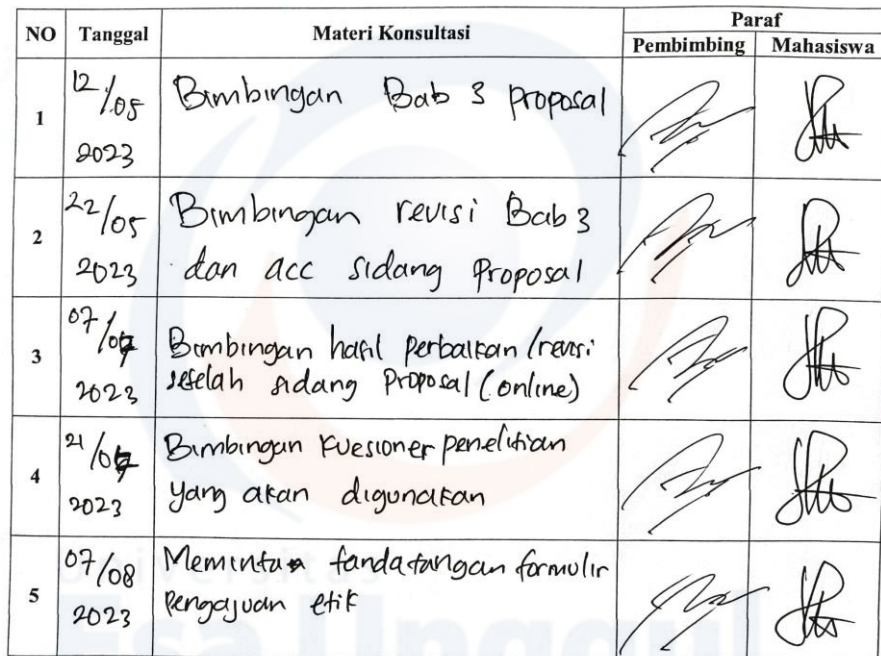 NO Tanggal Materi Konsultasi Paraf
Pembimbing Mahasiswa
1 12/05 2023 Bimbingan Bab 3 proposal
2 22/05 2023 Bimbingan revisi Bab 3
dan acc sidang Proposal
3 07/07 2023 Bimbingan hasil perbaikan/revisi
setelah sidang Proposal (online)
4 21/07 2023 Bimbingan Kuesioner penelitian
yang akan digunakan
5 07/08 2023 Meminta tandatangan formulir
Pengajuan etik
Universitas
Esa Unggul